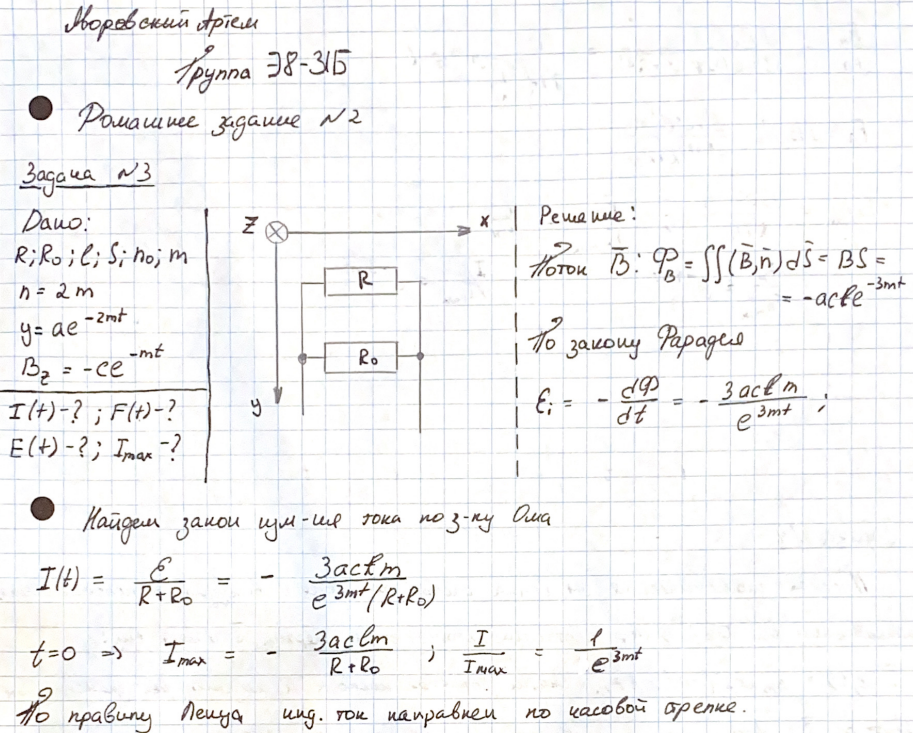 Яворовский Артём
Группа Э8-31Б
Домашнее задание №2
Задача №3
Дано:
R; R₀; l; S; n₀; m
n = 2m
y = ae^{-2mt}
B_z = -ce^{-mt}
I(t) - ? ; F(t) - ?
E(t) - ? ; I_max - ?
Z
x
R
R₀
y
Решение:
Поток B̄: Φ_B = ∬(B̄, n̄) dS̄ = BS =
= -acℓe^{-3mt}
По закону Фарадея
ε_i = - dΦ/dt = - 3acℓm/e^{3mt} ;
Найдем закон изм-ия тока по з-ну Ома
I(t) = ε/(R+R₀) = - 3acℓm/(e^{3mt}(R+R₀))
t=0 => I_max = - 3aclm/(R+R₀) ; I/I_max = 1/e^{3mt}
По правилу Ленца инд. ток направлен по часовой стрелке.